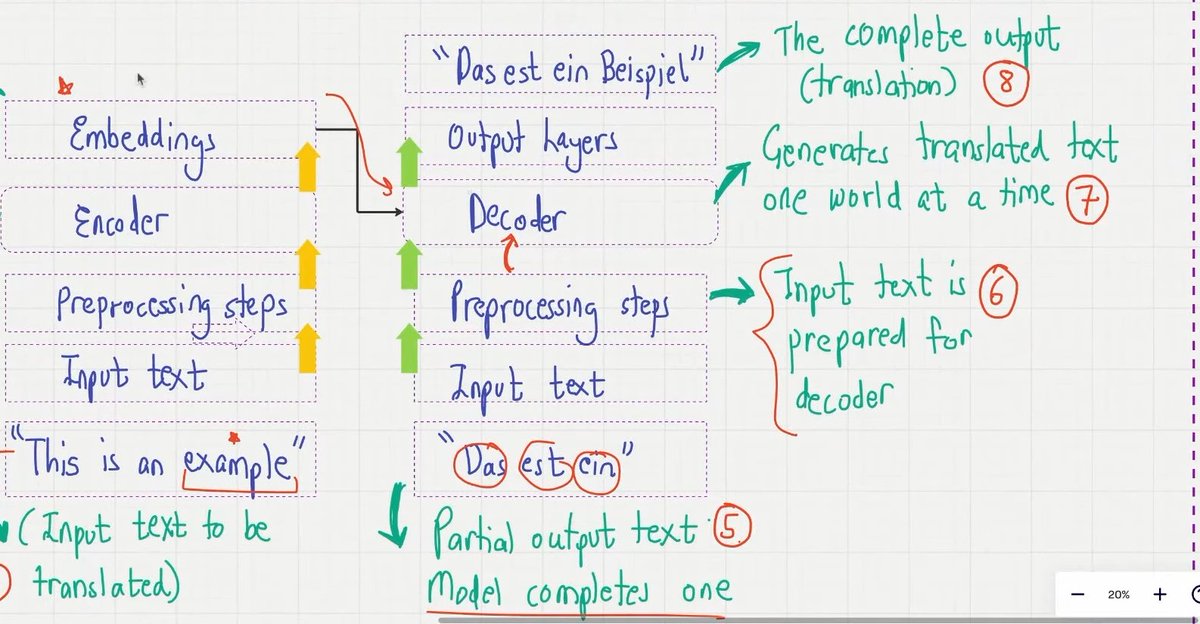 Embeddings
Encoder
Preprocessing steps
Input text
"This is an example"
(Input text to be
translated)
"Das est ein Beispiel"
Output Layers
Decoder
Preprocessing steps
Input text
"Das est ein"
Partial output text 5
Model completes one
The complete output
(translation) 8
Generates translated text
one world at a time 7
Input text is 6
prepared for
decoder
20%